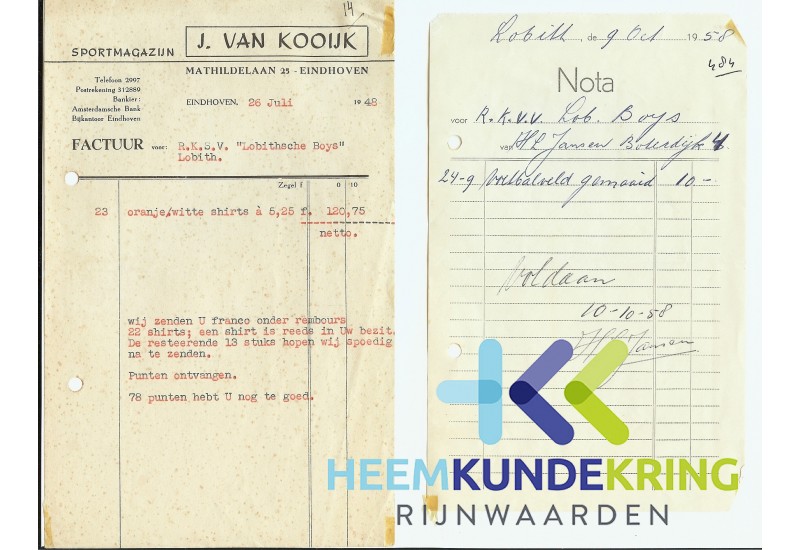 14
SPORTMAGAZIJN J. VAN KOOIJK
MATHILDELAAN 25 - EINDHOVEN
Telefoon 2997
Postrekening 312889
Bankier:
Amsterdamsche Bank
Bijkantoor Eindhoven
EINDHOVEN, 26 Juli 1948
FACTUUR voor: R.K.S.V. "Lobithsche Boys"
Lobith.
Zegel f 0 10
23 oranje/witte shirts à 5,25 f. 120,75
netto.
wij zenden U franco onder rembours
22 shirts; een shirt is reeds in Uw bezit.
De resteerende 13 stuks hopen wij spoedig
na te zenden.
Punten ontvangen.
78 punten hebt U nog te goed.
Lobith de 9 Oct 1958
484
Nota
voor R.K.V.V. Lob. Boys
van H L Jansen Boterdijk 4
24-9 Voetbalveld gemaaid 10-
Voldaan
10-10-58
Jansen
HEEMKUNDEKRING
RIJNWAARDEN